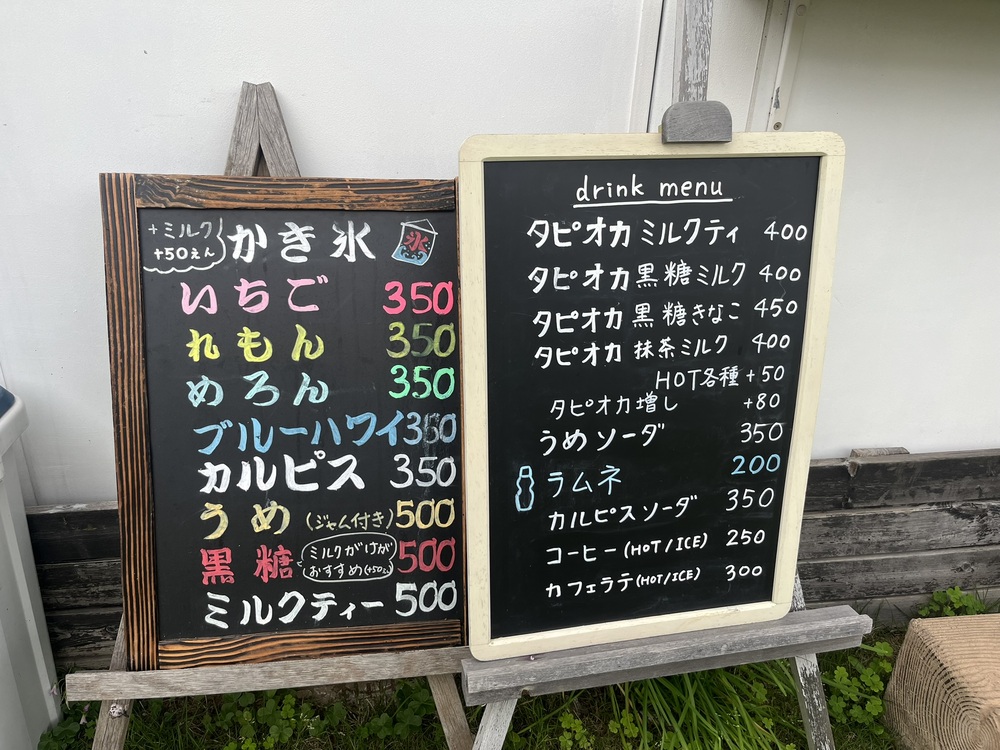 +ミルク
+50えん
かき氷
氷
いちご 350
れもん 350
めろん 350
ブルーハワイ 350
カルピス 350
うめ (ジャム付き) 500
黒糖 ミルクがけが 500
おすすめ(+50えん)
ミルクティー 500
drink menu
タピオカ ミルクティ 400
タピオカ 黒糖ミルク 400
タピオカ 黒糖きなこ 450
タピオカ 抹茶ミルク 400
HOT各種 +50
タピオカ増し +80
うめソーダ 350
ラムネ 200
カルピスソーダ 350
コーヒー(HOT/ICE) 250
カフェラテ(HOT/ICE) 300